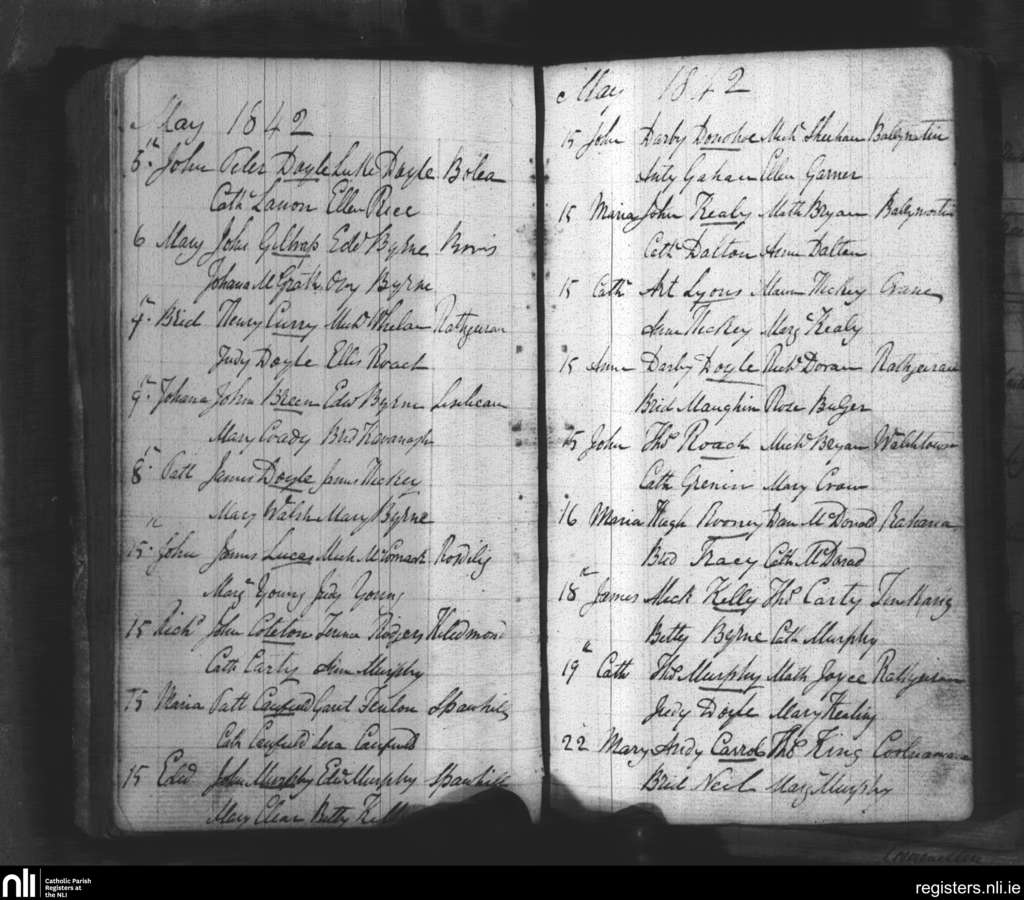 May 1842
5th John Peter Doyle Luke Doyle Bolea
Cath Lanon Ellen Rice
6 Mary John Gilthrap Edw Byrne Borris
Johana McGrath Byrne
7th Brid Henry Curry Mich Whelan Rathgeran
Judy Doyle Ellis Roach
9th Johana John Breen Edw Byrne
Mary Coady Brid Kavanagh
8th Patt James Doyle James Hickey
Mary Walsh Mary Byrne
15th John James Lucas Mich McComack
Marg Young Judy Young
15 Richd John Rodgers Kiledmond
Cath Carty Ann Murphy
15 Maria Patt Canfield Garet Fenlon Spawhill
Cath Canfield Canfield
15 Edwd John Murphy Edw Murphy Spawhill
Mary Betty
May 1842
15 John Darby Donohoe Mich Sheehan
Anty Gahan Ellen Garner
15 Maria John Kealy Math Bryan
Cath Dalton Anne Dalton
15 Cath Art Lyons Hickey Crane
Ann Hickey Marg Kealy
15 Anne Darby Doyle Rich Doran Rathgeran
Brid Maughin Rose Bulger
15 John Thos Roach Mich Bryan Walshtown
Cath Mary
16 Maria Hugh Rooney Dan McDonald Rahana
Brid Tracy Cath
18th James Mick Kelly Thos Carty
Betty Byrne Cath Murphy
19th Cath Thos Murphy Math Joyce Rathgeran
Judy Doyle Mary Kealiy
22 Mary Andy Carrol Thos King
Brid Neil Marg Murphy
nli
Catholic Parish
Registers at
the NLI
registers.nli.ie